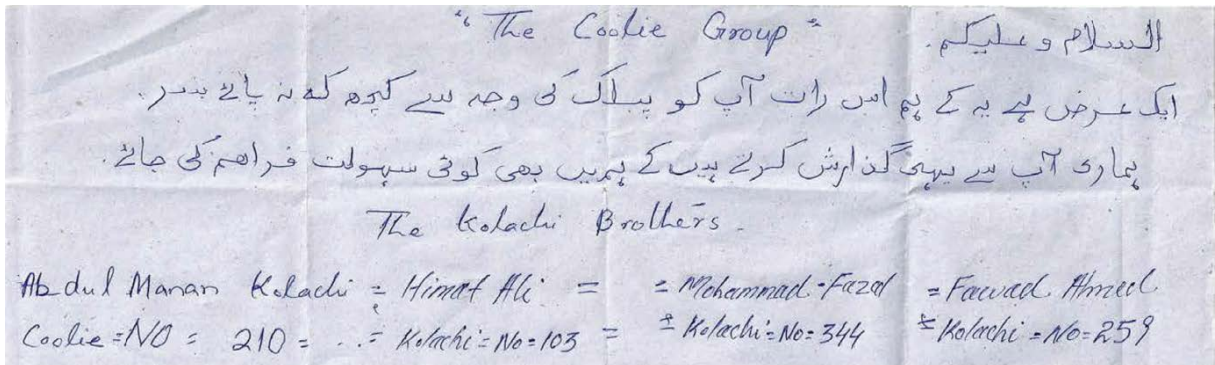 "The Coolie Group"
السلام وعلیکم.
ایک عرض ہے یہ کے ہم اس رات آپ کو پبلک کی وجہ سے کچھ کہ نہ پائے
ہماری آپ سے یہی گذارش کرتے ہیں کے ہمیں بھی کوئی سہولت فراھم کی جائے.
The Kolachi Brothers.
Abdul Manan Kolachi = Himat Ali = = Mohammad-Fazal = Fawad Ahmed
Coolie=NO = 210 = ..= Kolachi=No=103 = = Kolachi=No=344 = Kolachi=No=259